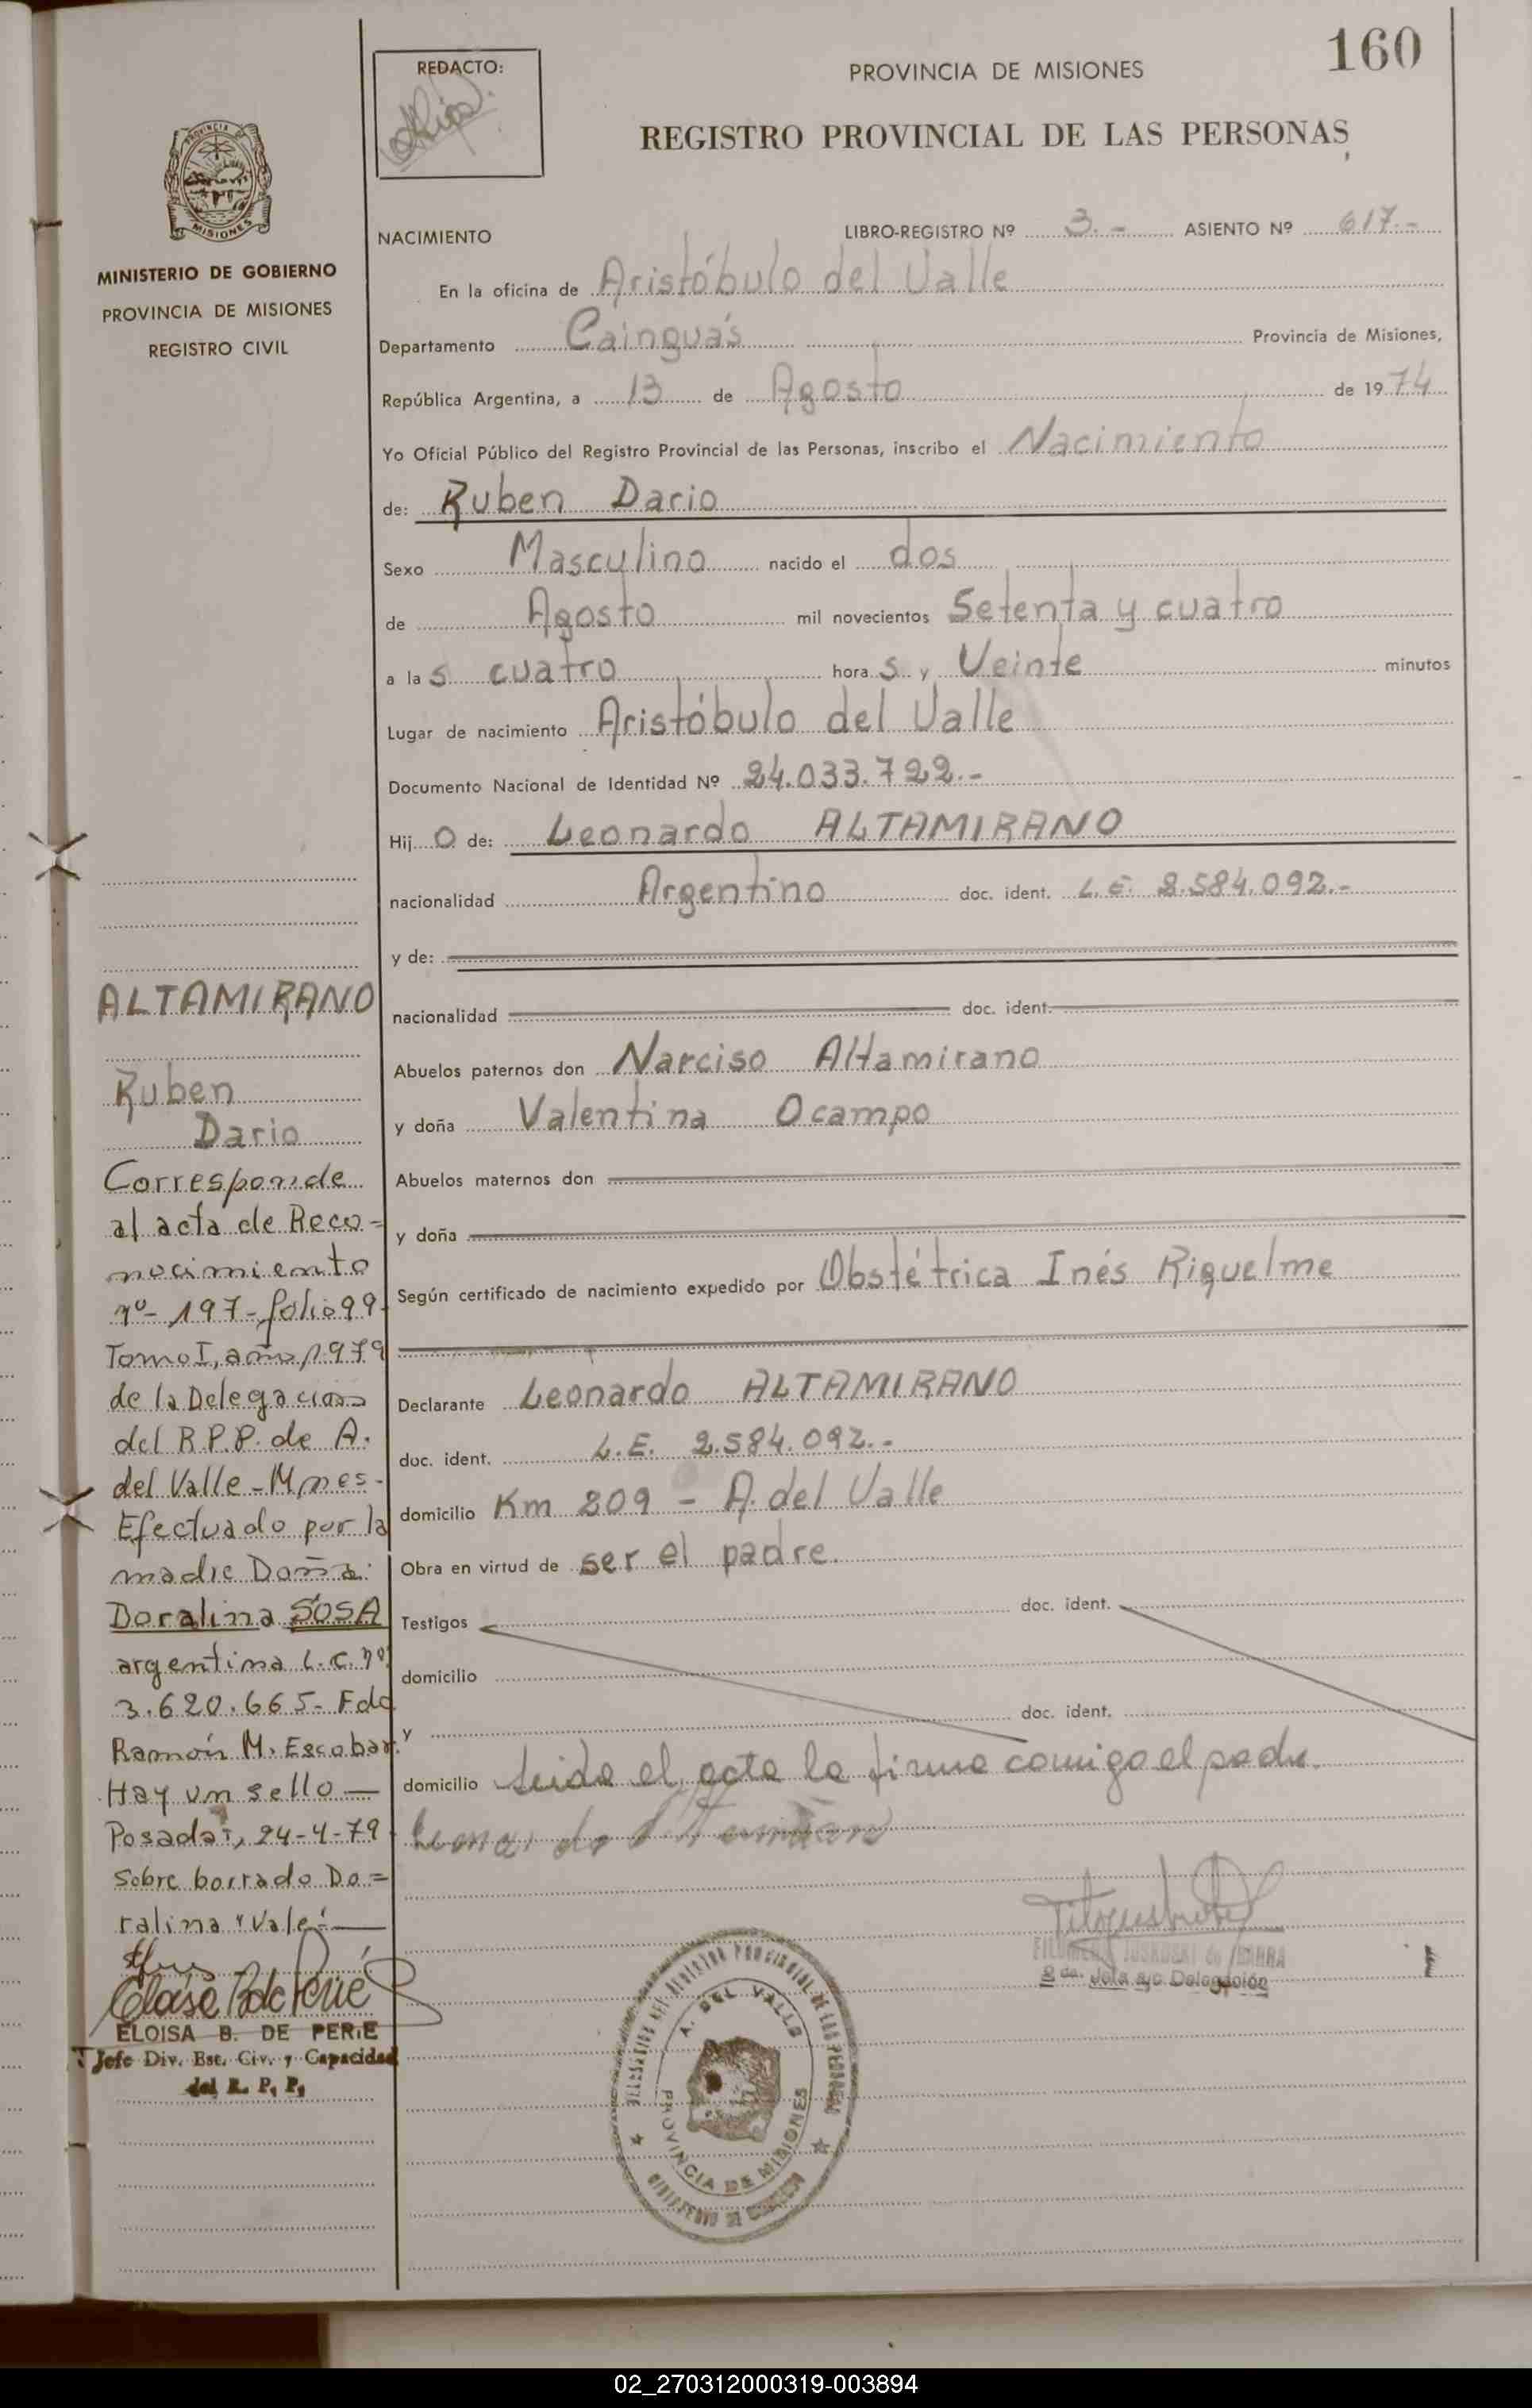 160
REDACTO:
PROVINCIA DE MISIONES
REGISTRO PROVINCIAL DE LAS PERSONAS
PROVINCIA DE
MISIONES
MINISTERIO DE GOBIERNO
PROVINCIA DE MISIONES
REGISTRO CIVIL
NACIMIENTO LIBRO-REGISTRO Nº 3.- ASIENTO Nº 617.-
En la oficina de Aristóbulo del Valle
Departamento Cainguás Provincia de Misiones,
República Argentina, a 13 de Agosto de 1974
Yo Oficial Público del Registro Provincial de las Personas, inscribo el Nacimiento
de: Ruben Dario
Sexo Masculino nacido el dos
de Agosto mil novecientos Setenta y cuatro
a las cuatro horas y Veinte minutos
Lugar de nacimiento Aristóbulo del Valle
Documento Nacional de Identidad Nº 24.033.722.-
Hijo de: Leonardo ALTAMIRANO
nacionalidad Argentino doc. ident. L.E. 2.584.092.-
y de:
nacionalidad doc. ident.
Abuelos paternos don Narciso Altamirano
y doña Valentina Ocampo
Abuelos maternos don
y doña
Según certificado de nacimiento expedido por Obstétrica Inés Riquelme
Declarante Leonardo ALTAMIRANO
doc. ident. L.E. 2.584.092.-
domicilio Km 209 - A. del Valle
Obra en virtud de ser el padre.
Testigos doc. ident.
domicilio
y doc. ident.
domicilio Leida el acta la firma comigo el padre.
ALTAMIRANO
Ruben
Dario
Corresponde
al acta de Reco=
nocimiento
nº- 197-folio 99-
Tomo I, año 1979
de la Delegacion
del R.P.P. de A.
del Valle-Mnes-
Efectuado por la
madre Doña:
Doralina SOSA
argentina L.C. nº
3.620.665- Fdo
Ramón M. Escobar.
Hay un sello —
Posadas, 24-4-79
Sobre borrado Do=
ralina "Vale" —
ELOISA B. DE PERIE
Jefe Div. Est. Civ. y Capacidad
del R. P. P.
2da. Jefa a/c Delegación
A. DEL VALLE
PROVINCIA DE MISIONES
MINISTERIO DE GOBIERNO
02_270312000319-003894